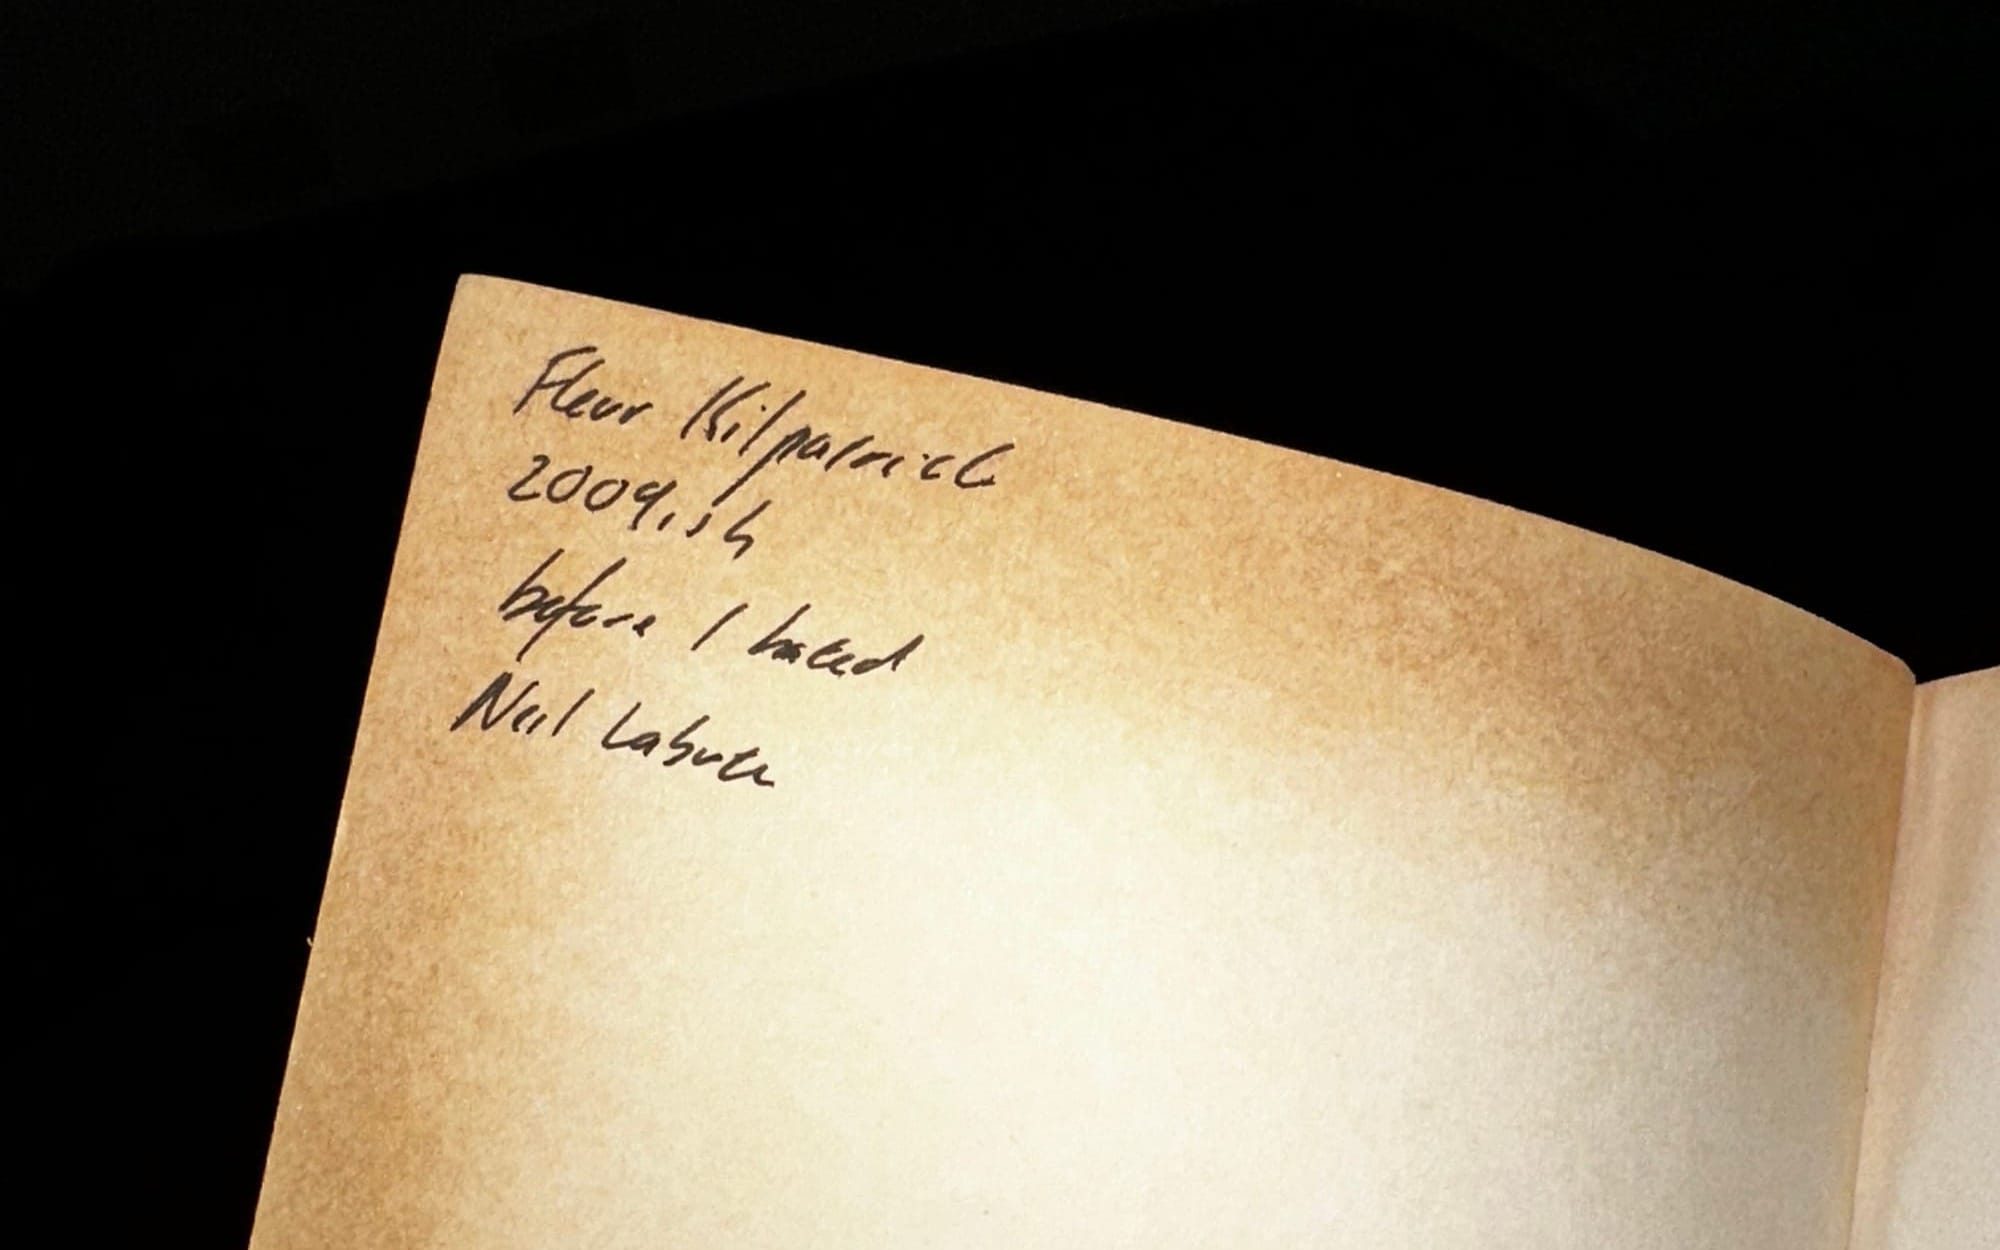 Fleur Kilpatrick
2009ish
before I hated
Neil Labute